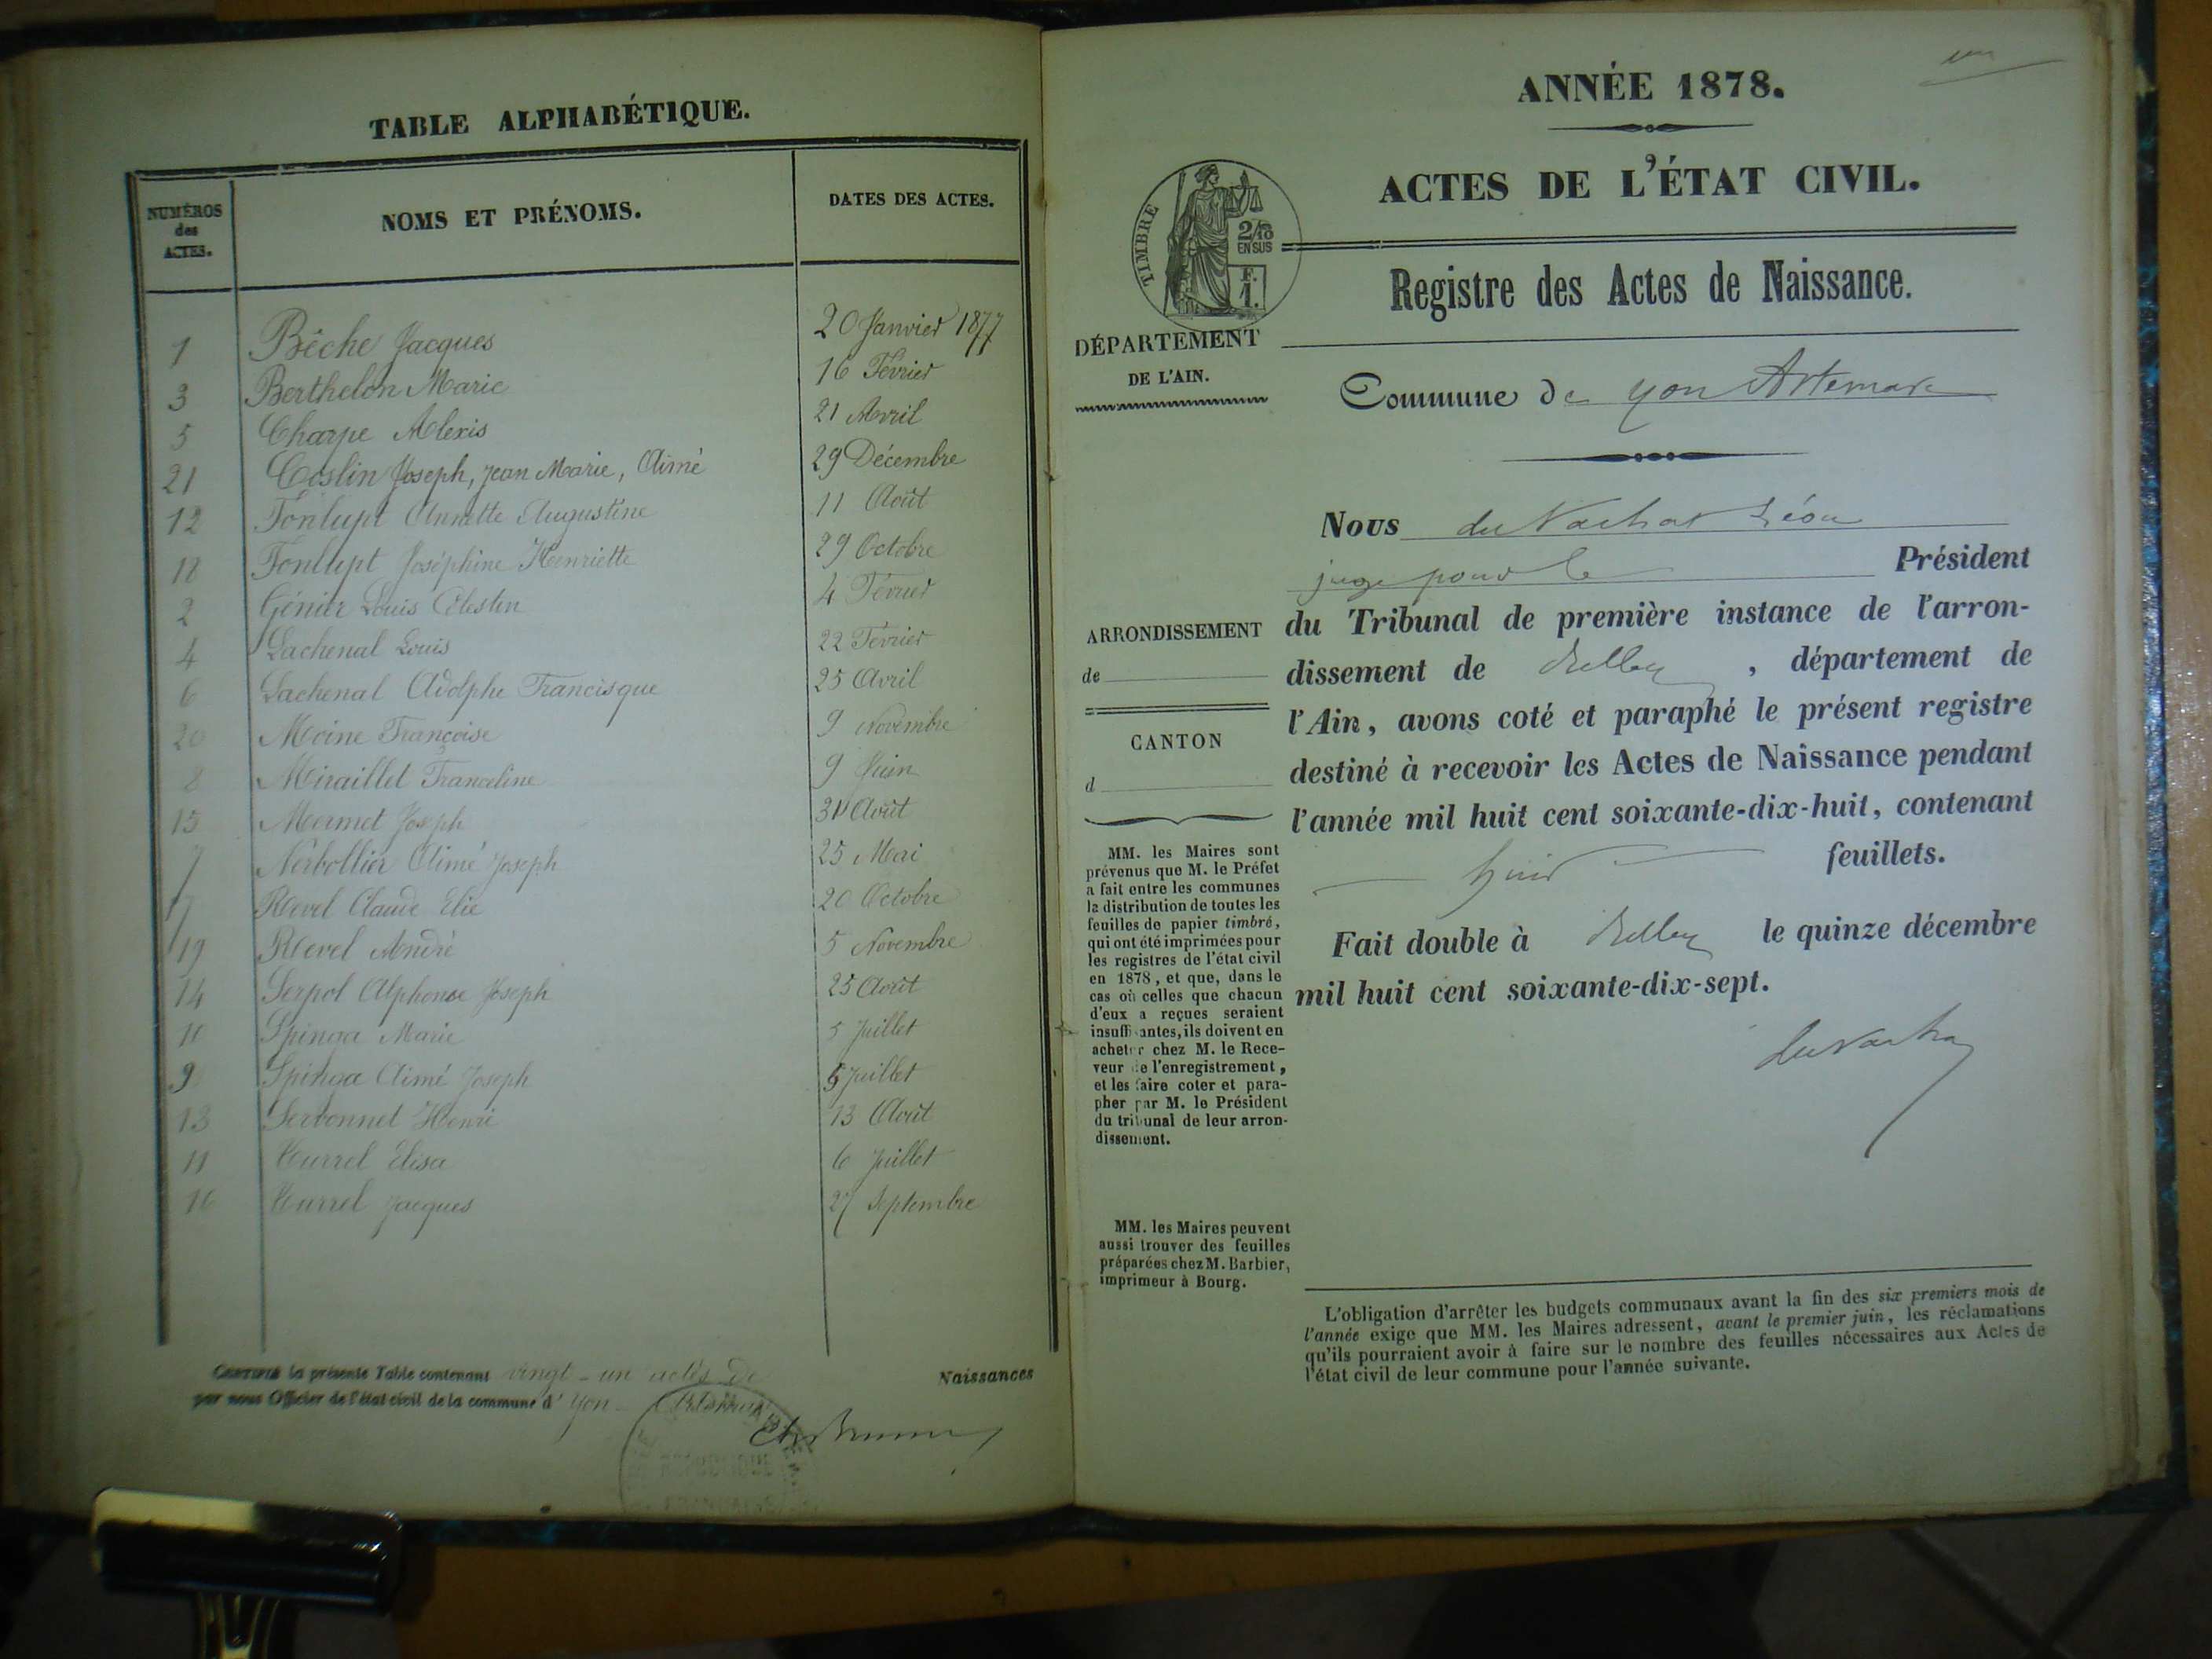 TABLE ALPHABÉTIQUE.
NUMÉROS des ACTES.
NOMS ET PRÉNOMS.
DATES DES ACTES.
1 Bêche Jacques 20 Janvier 1877
3 Berthelon Marie 16 Février
5 Charpe Alexis 21 Avril
21 Coslin Joseph, Jean Marie, Aimé 29 Décembre
12 Fontupt Annette Augustine 11 Août
18 Fontupt Joséphine Henriette 29 Octobre
2 Génier Louis Célestin 4 Février
4 Lachenal Louis 22 Février
6 Lachenal Adolphe Francisque 25 Avril
20 Moine Françoise 9 Novembre
8 Miraillet Franceline 9 Juin
15 Mermet Joseph 31 Août
7 Nerbollier Aimé Joseph 25 Mai
17 Revel Claude Elie 20 Octobre
19 Revel André 5 Novembre
14 Serpol Alphonse Joseph 25 Août
10 Spinga Marie 5 Juillet
9 Spinga Aimé Joseph 5 Juillet
13 Serbonnet Henri 13 Août
11 Turrel Elisa 6 Juillet
16 Turrel Jacques 27 Septembre
CERTIFIÉ la présente Table contenant vingt-un actes de Naissances
par nous Officier de l'état civil de la commune d' Yon
ANNÉE 1878.
ACTES DE L'ÉTAT CIVIL.
TIMBRE
2/10
EN SUS
F.
1.
Registre des Actes de Naissance.
DÉPARTEMENT
DE L'AIN.
Commune de yon Artemare
Nous du Vachat Léon
juge pour le Président
ARRONDISSEMENT
de
CANTON
d
du Tribunal de première instance de l'arron-
dissement de Belley, département de
l'Ain, avons coté et paraphé le présent registre
destiné à recevoir les Actes de Naissance pendant
l'année mil huit cent soixante-dix-huit, contenant
huit feuillets.
Fait double à Belley le quinze décembre
mil huit cent soixante-dix-sept.
duvachat
MM. les Maires sont
prévenus que M. le Préfet
a fait entre les communes
la distribution de toutes les
feuilles de papier timbré,
qui ont été imprimées pour
les registres de l'état civil
en 1878, et que, dans le
cas où celles que chacun
d'eux a reçues seraient
insuffisantes, ils doivent en
acheter chez M. le Rece-
veur de l'enregistrement,
et les faire coter et para-
pher par M. le Président
du tribunal de leur arron-
dissement.
MM. les Maires peuvent
aussi trouver des feuilles
préparées chez M. Barbier,
imprimeur à Bourg.
L'obligation d'arrêter les budgets communaux avant la fin des six premiers mois de
l'année exige que MM. les Maires adressent, avant le premier juin, les réclamations
qu'ils pourraient avoir à faire sur le nombre des feuilles nécessaires aux Actes de
l'état civil de leur commune pour l'année suivante.